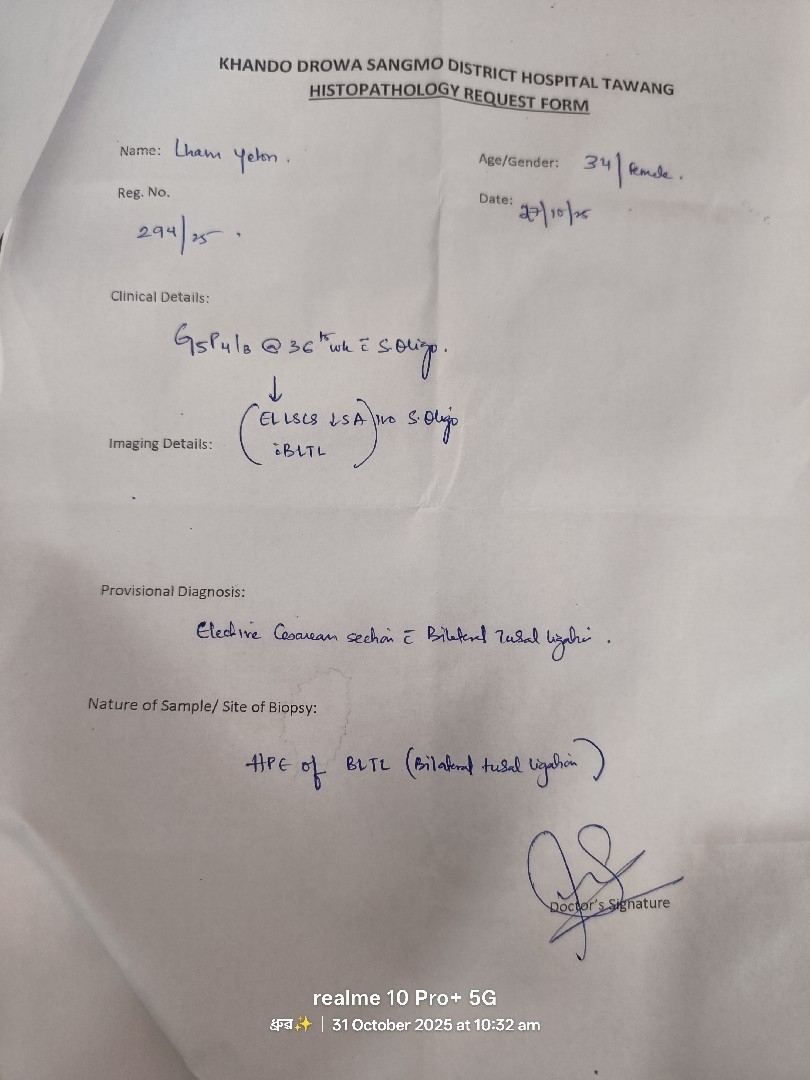 KHANDO DROWA SANGMO DISTRICT HOSPITAL TAWANG
HISTOPATHOLOGY REQUEST FORM
Name: Lham Yeton.
Age/Gender: 34/Female.
Reg. No.
294/25.
Date: 27/10/25
Clinical Details:
G5P4L3 @ 36 wk c̄ S.Oligo.
↓
(EL LSCS ↓SA) i/v/o S.Oligo
Imaging Details:
c̄ BLTL
Provisional Diagnosis:
Elective Cesarean section c̄ Bilateral Tubal ligation.
Nature of Sample/ Site of Biopsy:
HPE of BLTL (Bilateral tubal ligation)
Doctor's Signature
realme 10 Pro+ 5G
ध्रुव✨ | 31 October 2025 at 10:32 am